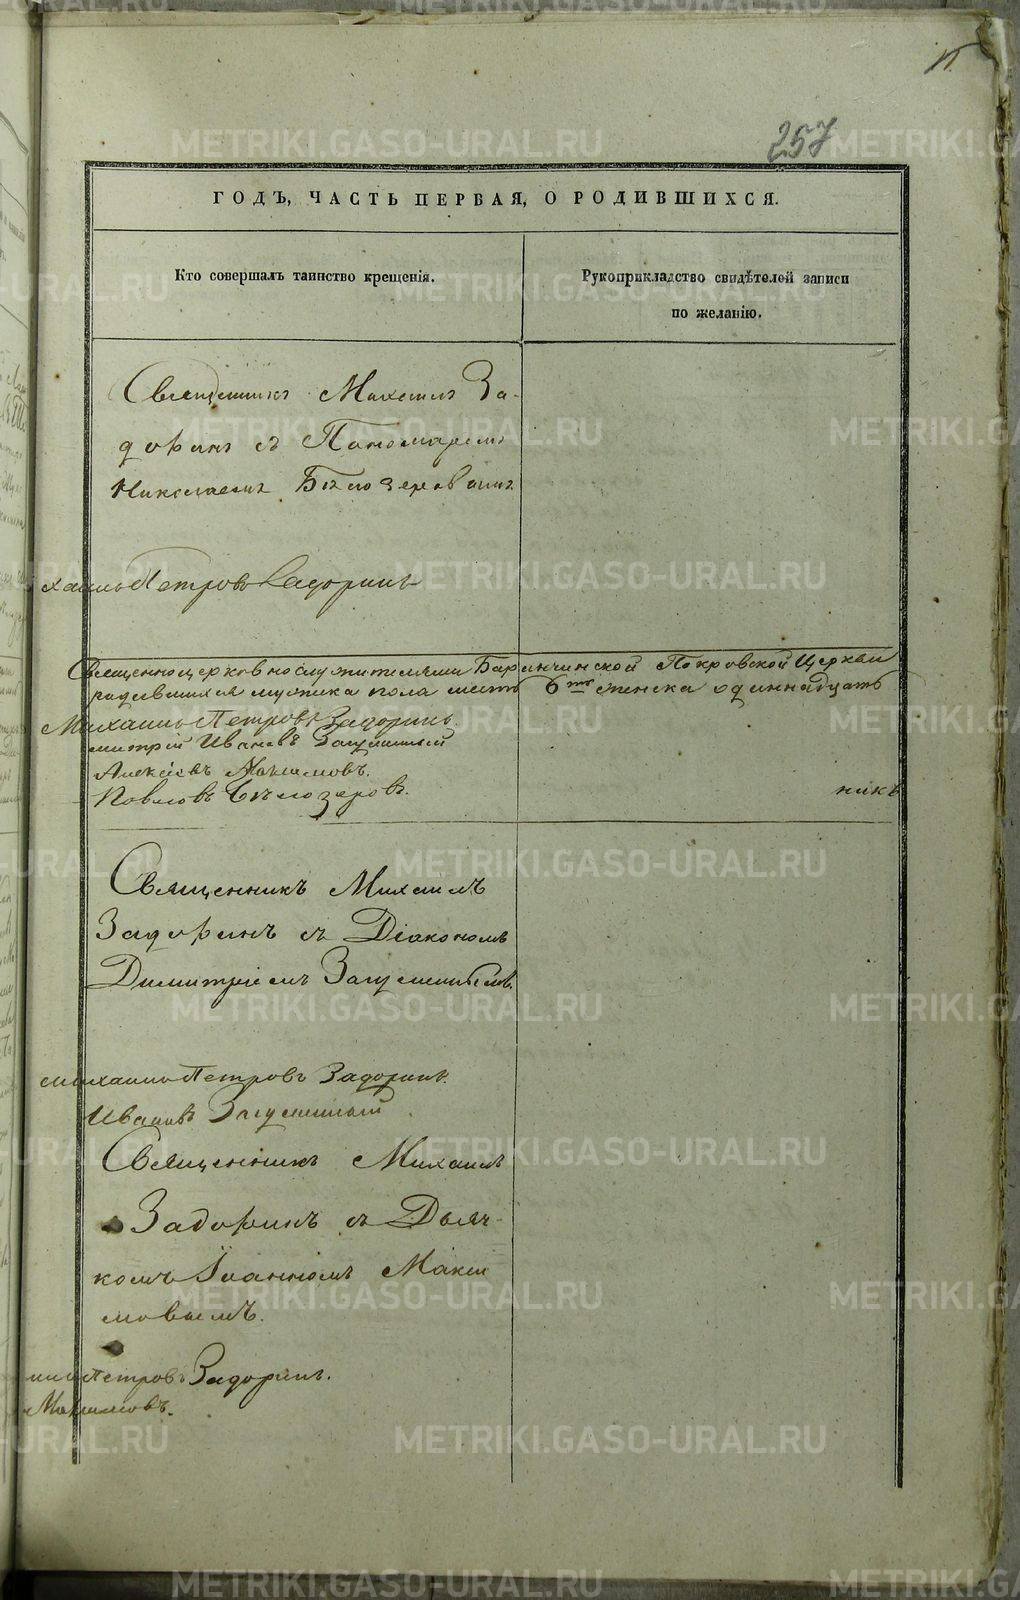 257
ГОДЪ, ЧАСТЬ ПЕРВАЯ, О РОДИВШИХСЯ.
Кто совершалъ таинство крещенія.
Рукоприкладство свидѣтелей записи
по желанію.
Священникъ Михаилъ За-
доринъ съ Пономаремъ
Николаемъ Бѣлозеровымъ
хаилъ Петровъ Задоринъ
Священноцерковнослужителями Баранчинской Покровской Церкви
родившихся мужска пола шесть 6ть женска одиннадцать
Михаилъ Петровъ Задоринъ.
митрій Ивановъ Загуменный
Алексѣевъ Максимовъ.
Павловъ Бѣлозеровъ.
никъ
Священникъ Михаилъ
Задоринъ съ Діакономъ
Димитріемъ Загуменнымъ.
михаилъ Петровъ Задоринъ.
Ивановъ Загуменный
Священникъ Михаилъ
Задоринъ съ Дьяч-
комъ Іоанномъ Макси
мовымъ.
илъ Петровъ Задоринъ.
Максимовъ.
METRIKI.GASO-URAL.RU